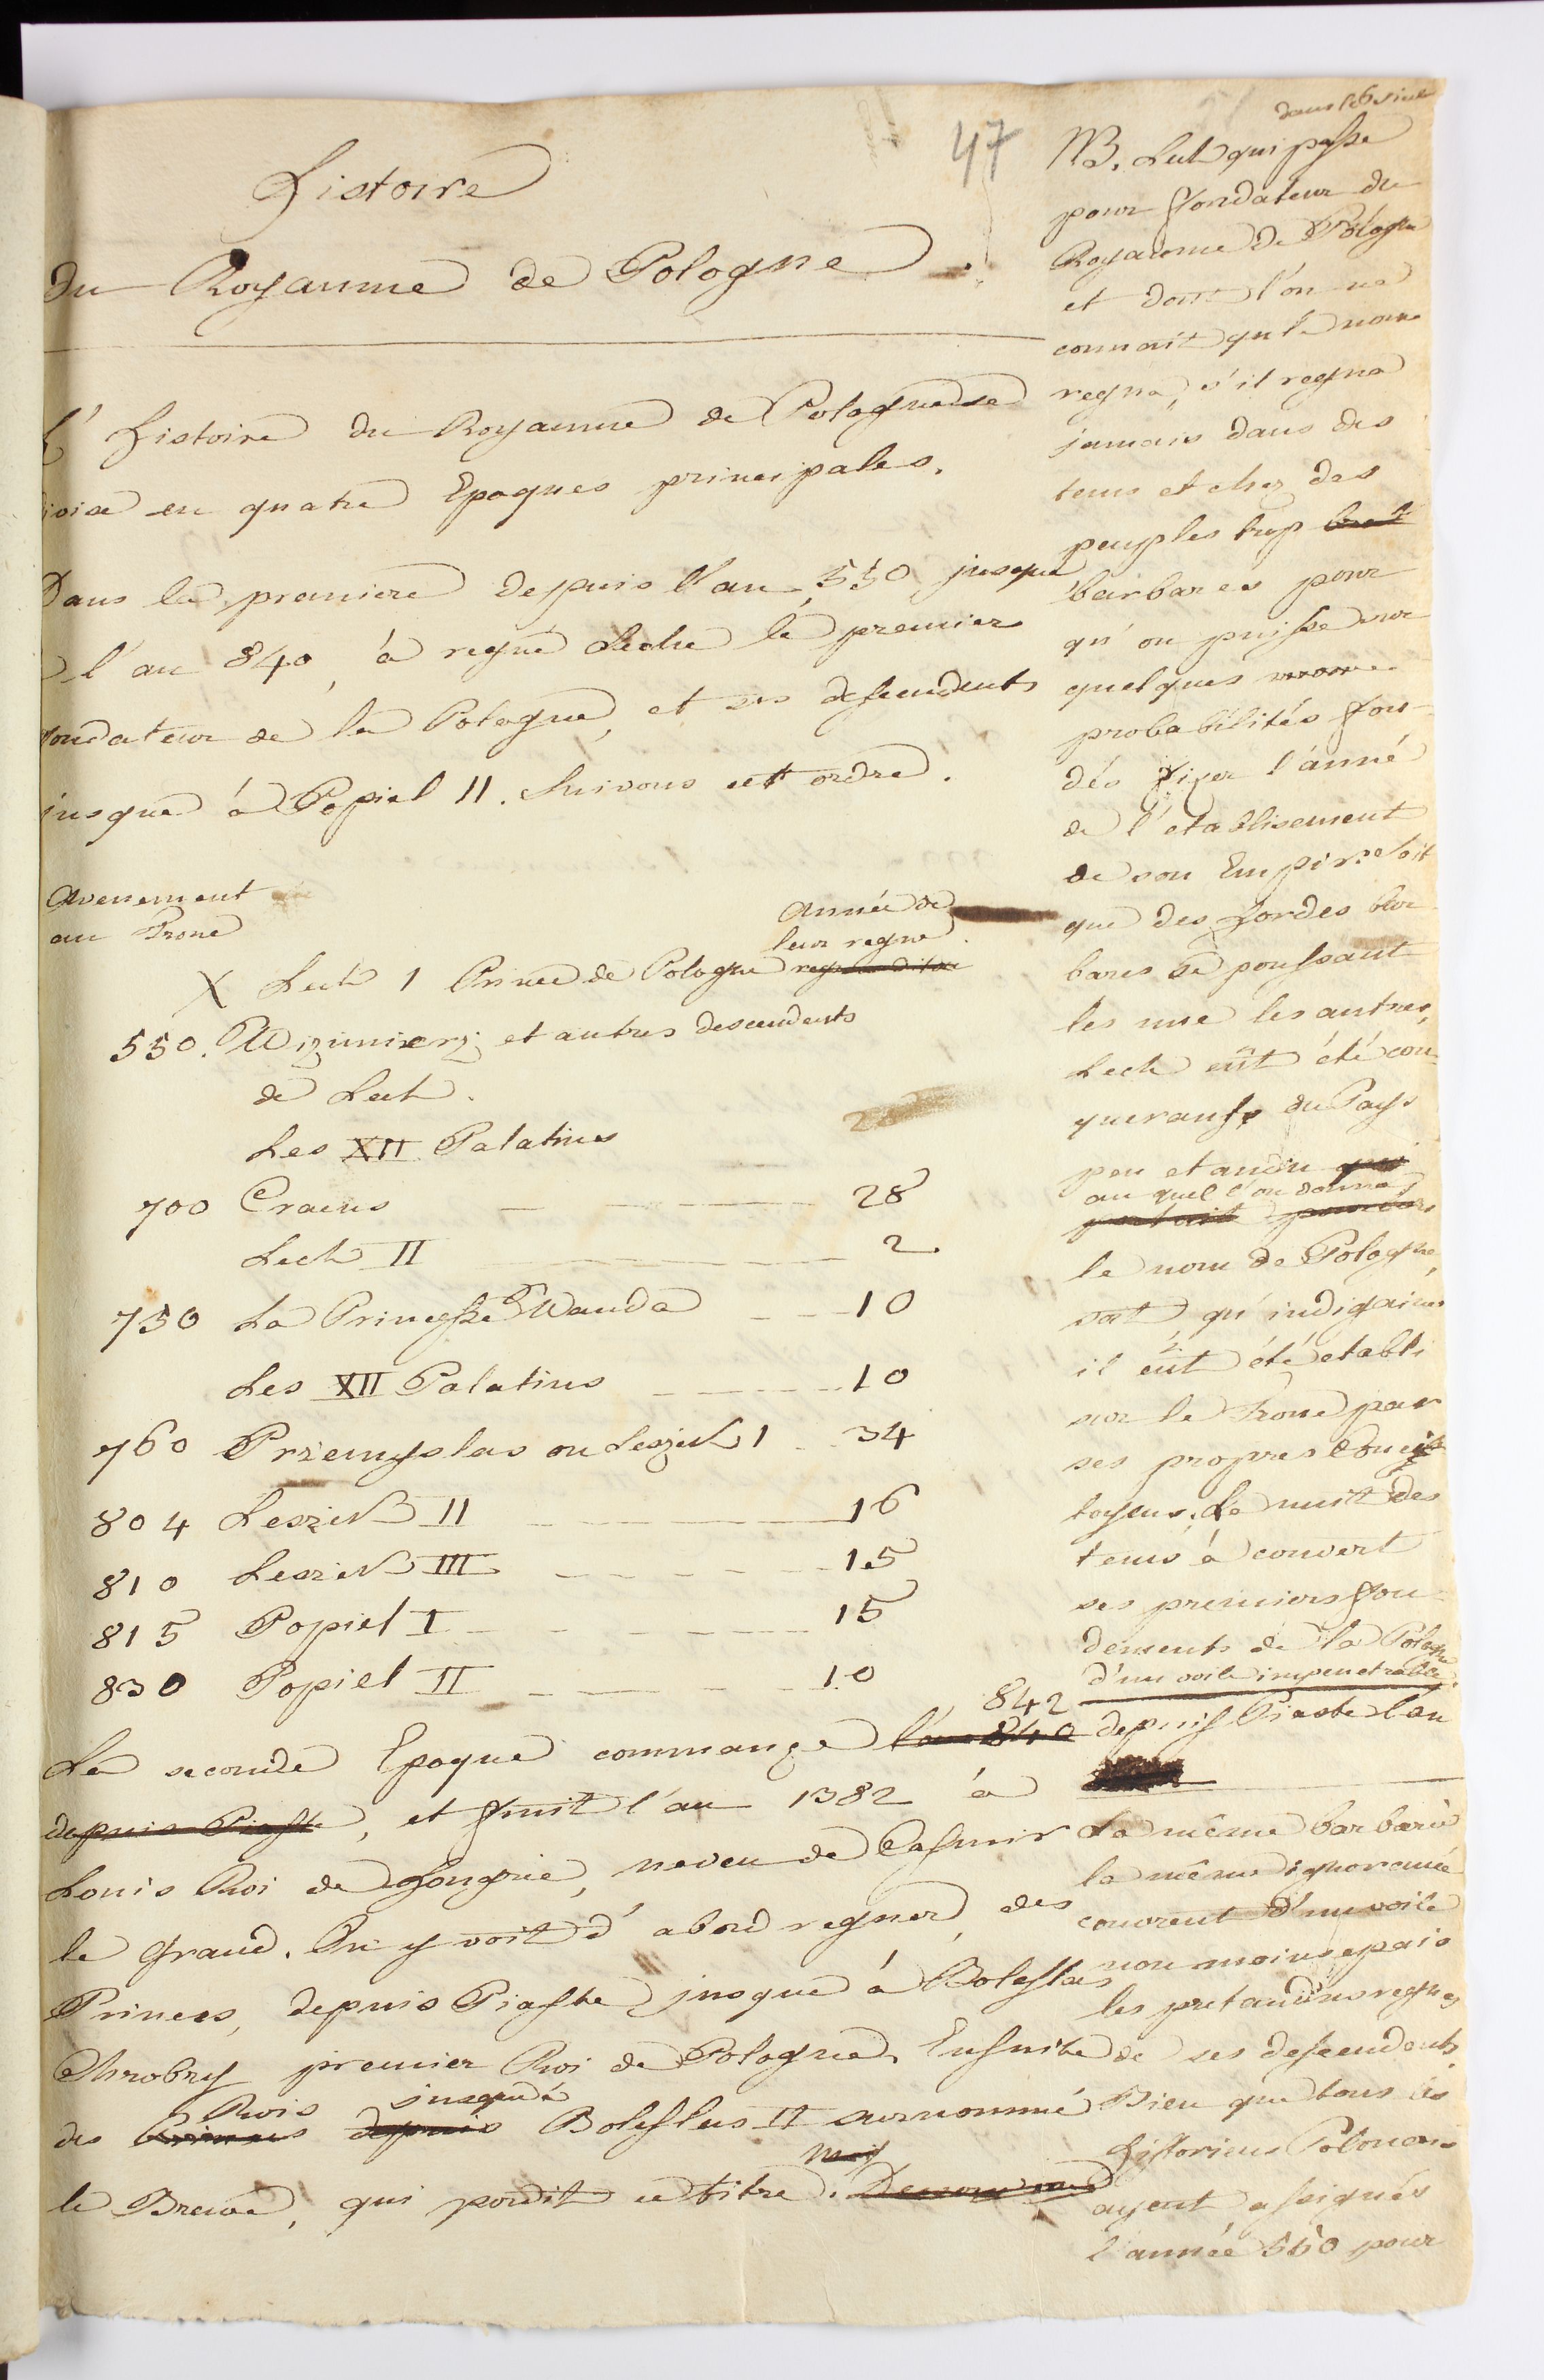 47
Histoire
du Royaume de Pologne.
L' histoire du Royaume de Pologne se
ivise en quatre Epoques principales.
Dans la premiere depuis l'an 550 jusque
l'an 840, à regné Leche le premier
fondateur de la Pologne, et ses descendents
jusque à Popiel II. Suivons cet ordre.
Avenement
au Trone
Année de
leur regne
X Lech 1 Prince de Pologne
550. Wizimierz et autres descendents
de Lech.
Les XII Palatins
700 Cracus 28
Lech II 2
750 La Princesse Wanda 10
Les XII Palatins 10
760 Przemyslas ou Leszek 1 34
804 Leszek II 16
810 Leszek III 15
815 Popiel I 15
830 Popiel II 10
842
La seconde Epoque commance l'an 840
depuis Piaste, et finit l'an 1382 à
Louis Roi de Hongrie, neveu de Casimir
le Grand. On y voit d'abord regner, des
Princes, depuis Piaste jusque à Boleslas
Chrobry premier Roi de Pologne. Ensuite
Rois jusque à
des Princes depuis Boleslas II surnommé
le Breave, qui perdit ce titre.
dans le 6 siecle
NB. Lech qui passe
pour fondateur du
Royaume de Pologne
et dont l'on ne
connait que le nom
regna, s'il regna
jamais dans des
tems et chez des
peuples trop
barbares pour
qu'on puisse sur
quelques
probabilités fon-
dés fixer l'anné
de l'etablisement
de son Empire. Soit
que des hordes bar
bares se poussant
les une les autres,
Lech eût été con-
querant du Pays
peu etandu qui
au quel l'on donna
le nom de Pologne,
soit qu'indigaine
il eût été etabli
sur le Trone par
ses propres Conci
toyens. Le nuit des
tems à couvert
ses premiers fon-
dements de la Pologne
d'un voile impenetrable.
depuis Piaste l'an
La même barbarie
la même ignorance
couvrent d'un voile
non moins epais
les pretandus regnes
de ses descendents.
Bien que tous les
Historiens Polonois
ayent assignés
l'année 550 pour